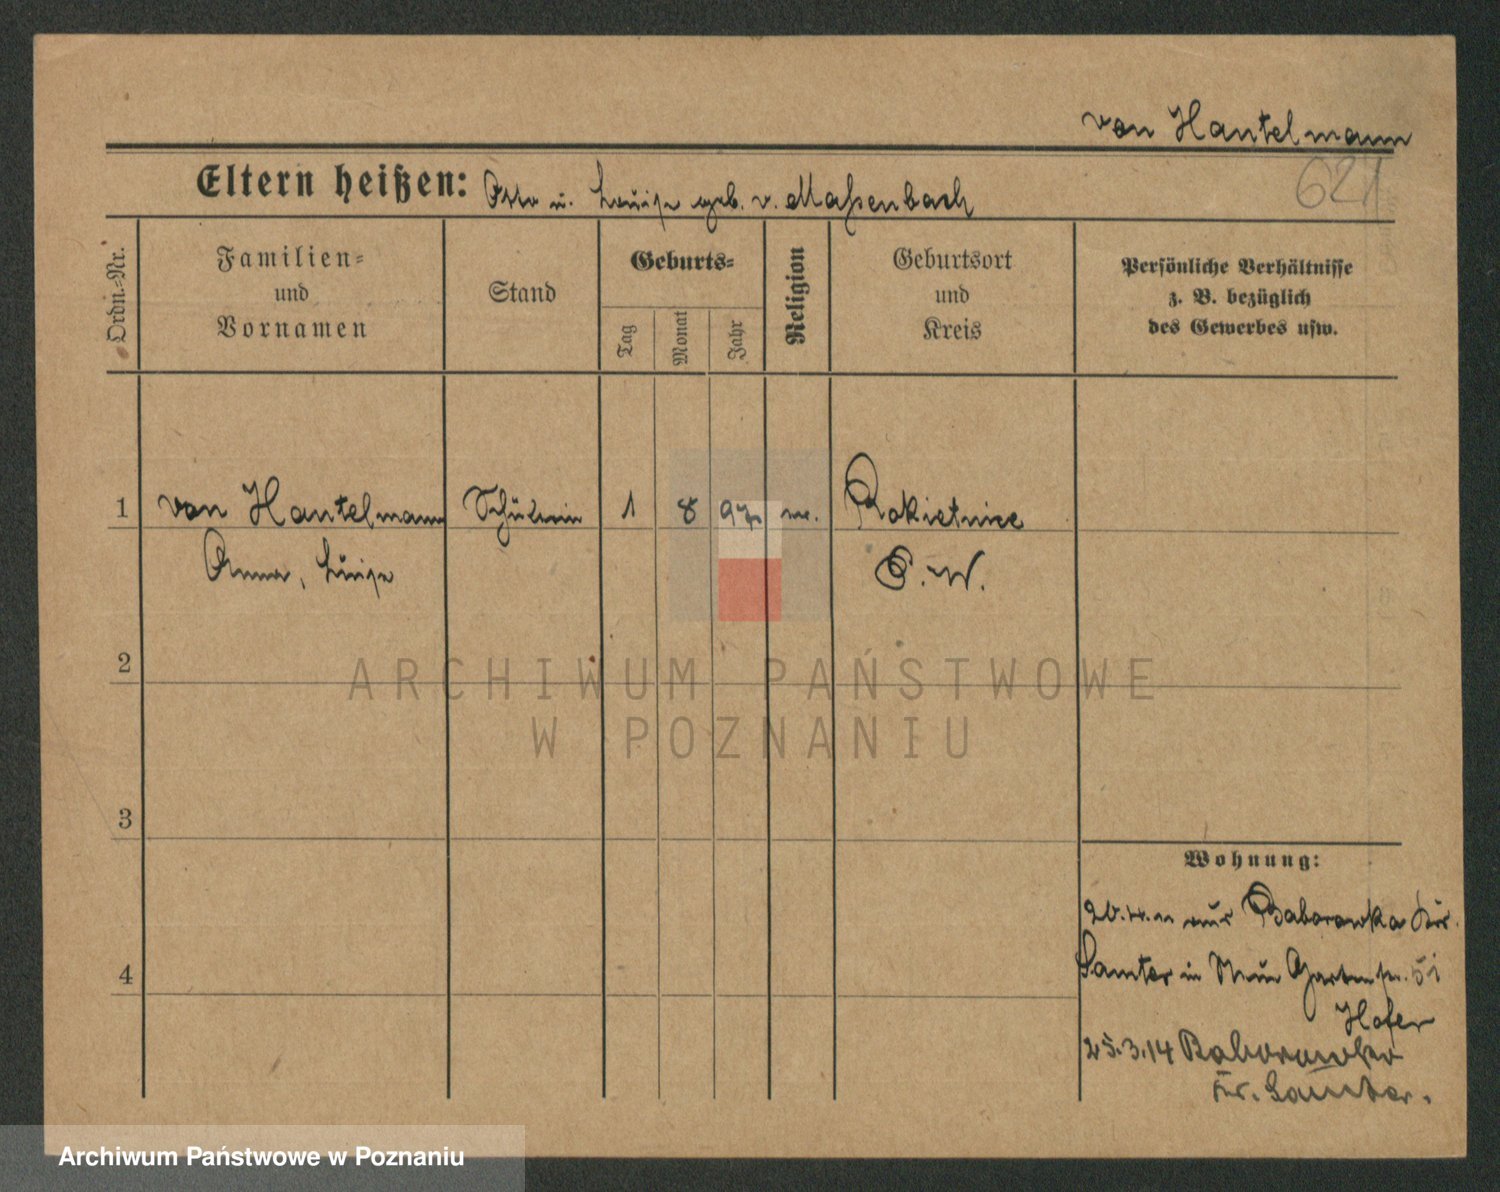 von Hantelmann
627
Eltern heißen: Otto u. Luise geb. v. Massenbach
Ordn.-Nr.
Familien-
und
Vornamen
Stand
Geburts-
Tag
Monat
Jahr
Religion
Geburtsort
und
Kreis
Persönliche Verhältnisse
z. B. bezüglich
des Gewerbes usw.
1 von Hantelmann Schülerin 1 8 97 Rokietnice
Anna, Luise P. W.
2
ARCHIWUM PAŃSTWOWE
W POZNANIU
3
Wohnung:
aus Baborowko Kr.
4
Samter in Gartenstr. 5
Hofer
25.3.14 Baborowko
Kr. Samter.
Archiwum Państwowe w Poznaniu